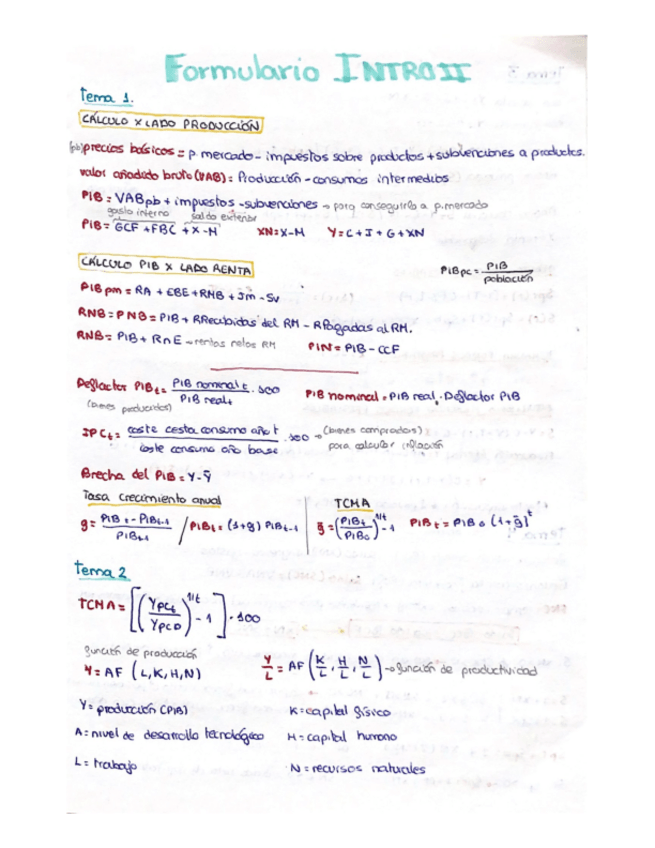 Formulario INTRO II
Tema 1.
CÁLCULO X LADO PRODUCCIÓN
(pb) precios básicos = p. mercado - impuestos sobre productos + subvenciones a productos.
valor añadido bruto (VAB) = Producción - consumos intermedios
PIB = VABpb + impuestos - subvenciones → para conseguirlo a p. mercado
gasto interno saldo exterior
PIB = GCF + FBC + X - M XN = X-M Y = C + I + G + XN
CÁLCULO PIB X LADO RENTA
PIBpc = PIB / población
PIBpm = RA + EBE + RMB + Im - Sv
RNB = PNB = PIB + RRecibidas del RM - RPagadas al RM.
RNB = PIB + RnE → rentas netas RM PIN = PIB - CCF
Deflactor PIBt = PIB nominal t / PIB real t · 100 PIB nominal = PIB real · Deflactor PIB
(bienes producidos)
IPCt = coste cesta consumo año t / coste consumo año base · 100 → (bienes comprados) para calcular inflación
Brecha del PIB = Y - Ȳ
Tasa crecimiento anual TCMA
g = PIBt - PIBt-1 / PIBt-1 / PIBt = (1+g) PIBt-1 ḡ = (PIBt / PIBo)^1/t - 1 PIBt = PIBo (1+ḡ)^t
Tema 2
TCMA = [(YPCt / YPC0)^1/t - 1] · 100
función de producción
Y = AF (L, K, H, N) Y/L = AF (K/L, H/L, N/L) → función de productividad
Y = producción (PIB) K = capital físico
A = nivel de desarrollo tecnológico H = capital humano
L = trabajo N = recursos naturales